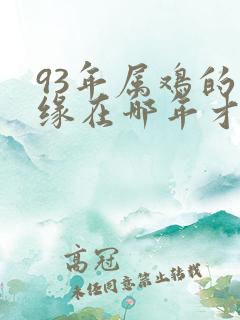 93年属鸡的
缘在哪年才
高冠
未经同意禁止转载